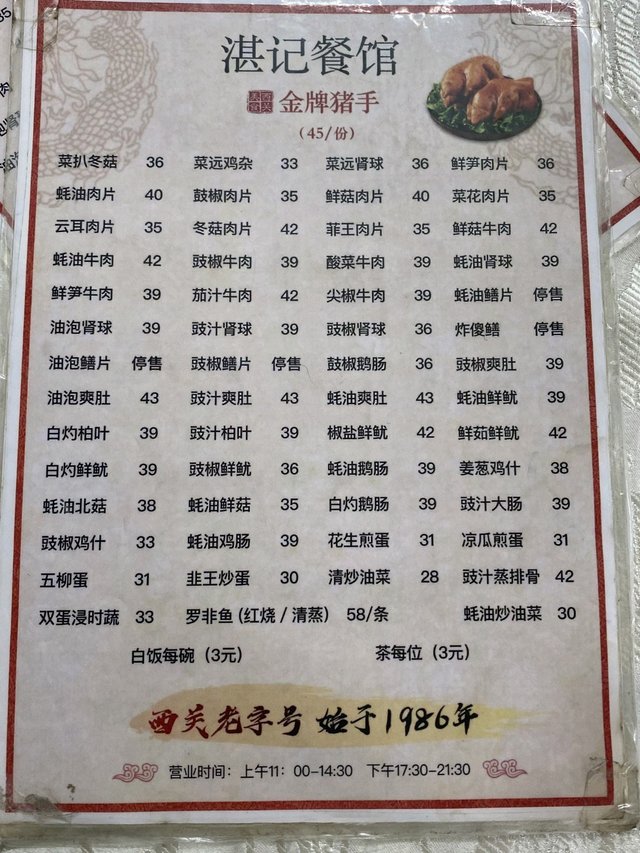 湛记餐馆
金牌猪手
（45/份）
菜扒冬菇 36 菜远鸡杂 33 菜远肾球 36 鲜笋肉片 36
蚝油肉片 40 鼓椒肉片 35 鲜菇肉片 40 菜花肉片 35
云耳肉片 35 冬菇肉片 42 菲王肉片 35 鲜菇牛肉 42
蚝油牛肉 42 豉椒牛肉 39 酸菜牛肉 39 蚝油肾球 39
鲜笋牛肉 39 茄汁牛肉 42 尖椒牛肉 39 蚝油鳝片 停售
油泡肾球 39 豉汁肾球 39 豉椒肾球 36 炸傻鳝 停售
油泡鳝片 停售 豉椒鳝片 停售 鼓椒鹅肠 36 豉椒爽肚 39
油泡爽肚 43 豉汁爽肚 43 蚝油爽肚 43 蚝油鲜鱿 39
白灼柏叶 39 豉汁柏叶 39 椒盐鲜鱿 42 鲜茄鲜鱿 42
白灼鲜鱿 39 豉椒鲜鱿 36 蚝油鹅肠 39 姜葱鸡什 38
蚝油北菇 38 蚝油鲜菇 35 白灼鹅肠 39 豉汁大肠 39
豉椒鸡什 33 蚝油鸡肠 39 花生煎蛋 31 凉瓜煎蛋 31
五柳蛋 31 韭王炒蛋 30 清炒油菜 28 豉汁蒸排骨 42
双蛋浸时蔬 33 罗非鱼（红烧 / 清蒸） 58/条 蚝油炒油菜 30
白饭每碗（3元） 茶每位（3元）
西关老字号 始于1986年
营业时间：上午11：00-14:30 下午17:30-21:30